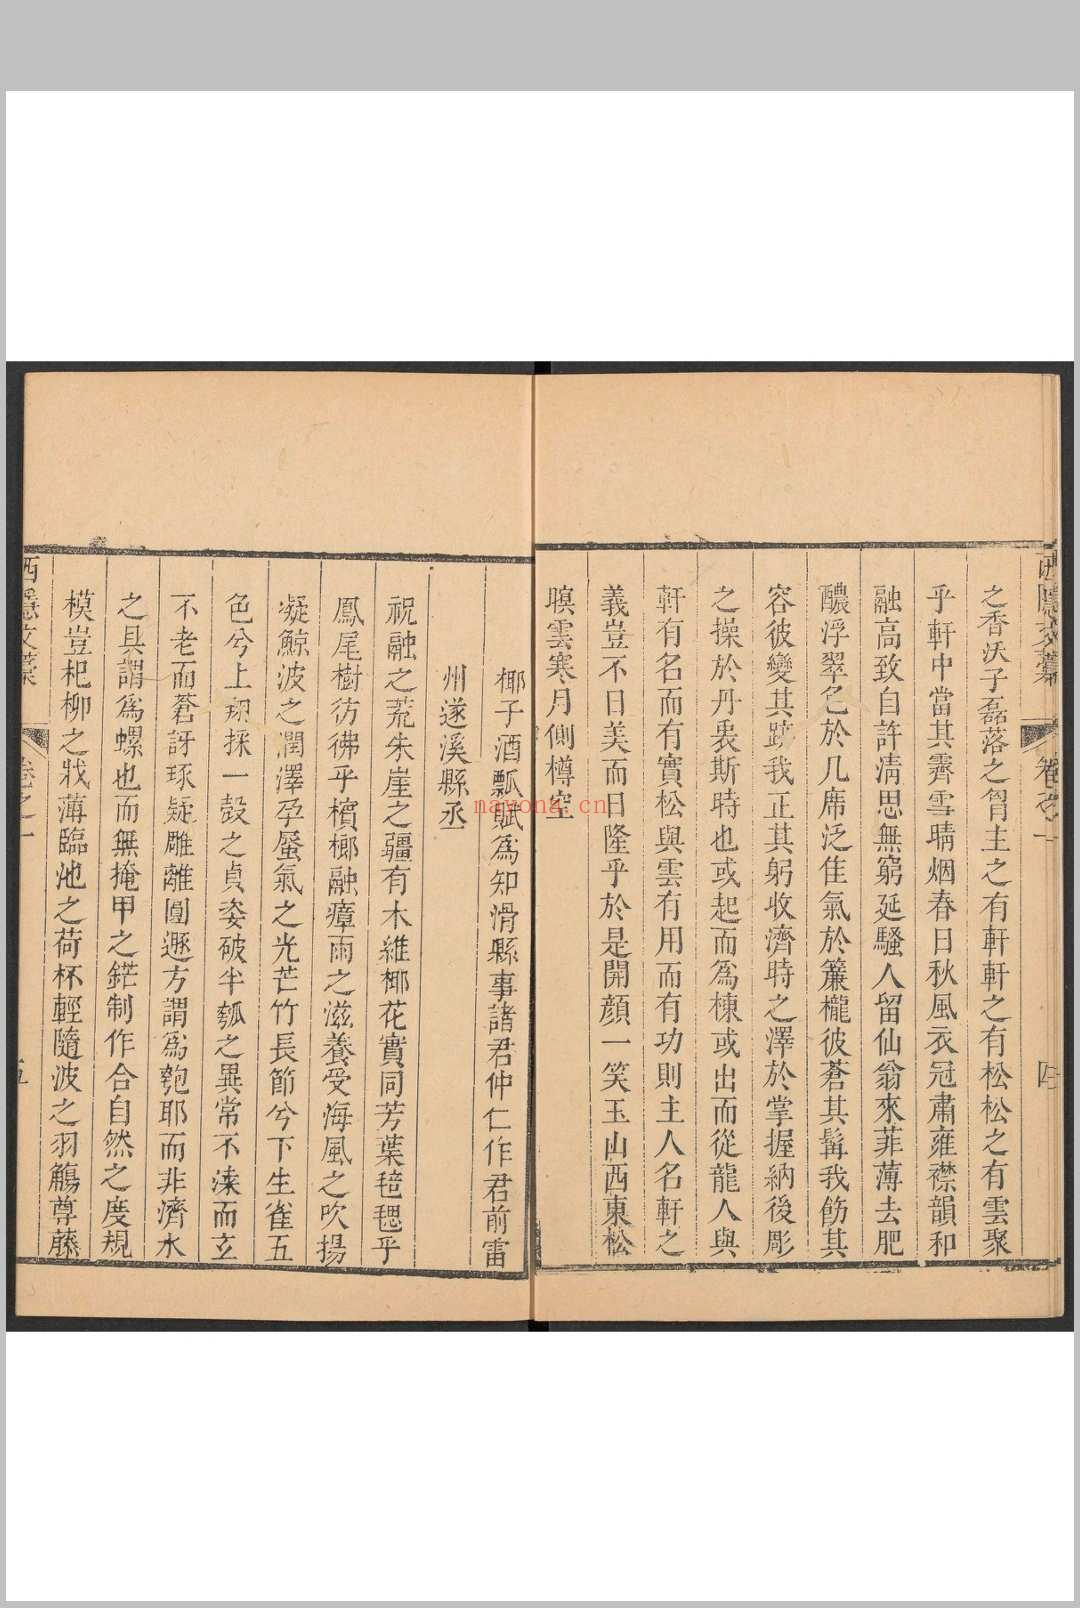 西隱文藁 卷之一 四
之香沃子磊落之胷主之有軒軒之有松松之有雲聚
乎軒中當其霽雪晴烟春日秋風衣冠肅雍襟韻和
融高致自許淸思無窮延騷人留仙翁來菲薄去肥
醲浮翠色於几席泛佳氣於簾櫳彼蒼其髯我飭其
容彼變其跡我正其躬收濟時之澤於掌握納後彫
之操於丹衷斯時也或起而爲棟或出而從龍人與
軒有名而有實松與雲有用而有功則主人名軒之
義豈不日美而日隆乎於是開顔一笑玉山西東松
暝雲寒月側樽空
椰子酒瓢賦爲知滑縣事諸君仲仁作君前雷
州遂溪縣丞
祝融之荒朱崖之疆有木維椰花實同芳葉毰毸乎
鳳尾樹彷彿乎檳榔融瘴雨之滋養受海風之吹揚
凝鯨波之潤澤孕蜃氣之光芒竹長節兮下生雀五
色兮上翔採一殼之貞姿破半瓠之異常不淶而玄
不老而蒼訝琢疑雕離圓遯方謂爲匏耶而非濟水
之具謂爲螺也而無掩甲之鋩制作合自然之度規
模豈杞柳之戕薄臨池之荷杯輕隨波之羽觴尊藤
西隱文藁 卷之一 五
nayong.cn